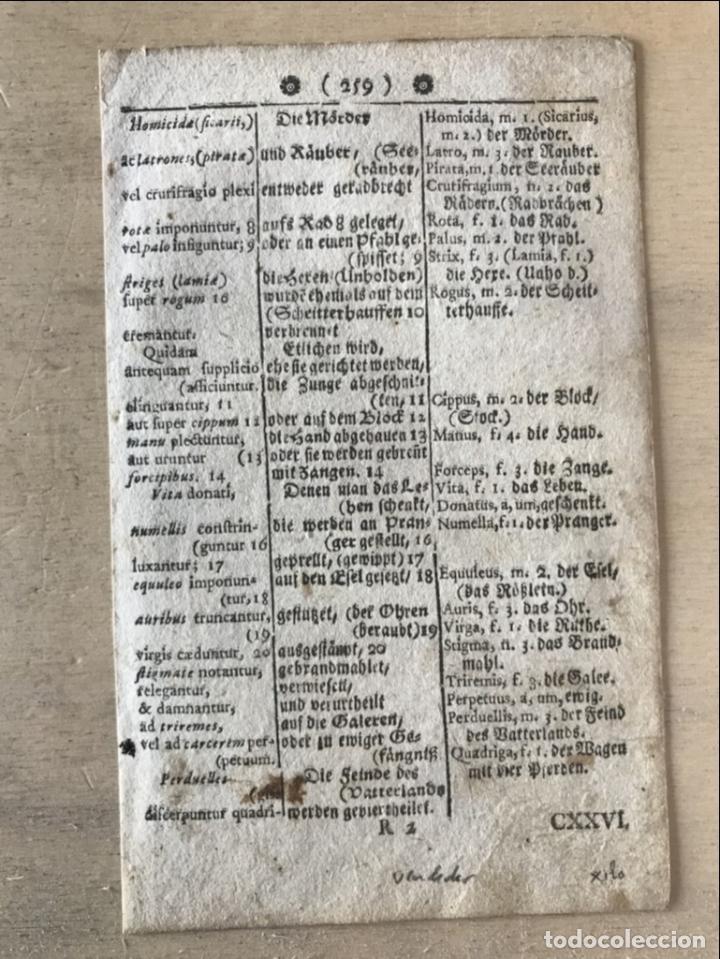 ( 259 )
Homicidæ (sicarii,)
ac latrones, (piratæ)
vel crurifragio plexi
rotæ imponuntur, 8
vel palo infiguntur; 9
striges (lamiæ)
super rogum 10
cremantur.
Quidam
antequam supplicio
(afficiuntur.
elinguantur, 11
aut super cippum 12
manu plectuntur,
aut uruntur (13
forcipibus. 14
Vita donati,
numellis constrin-
(guntur 16
luxantur; 17
equuleo imponun-
(tur, 18
auribus truncantur,
(19
virgis cæduntur, 20
stigmate notantur,
relegantur,
& damnantur,
ad triremes,
vel ad carcerem per-
(petuum.
Perduelles
discerpuntur quadri-
Die Mörder
und Räuber, (See-
(räuber,
entweder geradbrecht
aufs Rad 8 geleget,
oder an einen Pfahl ge-
(spisset; 9
die Hexen (Unholden)
wurdē ehemals auf dem
(Scheitterhauffen 10
verbrennet
Etlichen wird,
ehe sie gerichtet werden,
die Zunge abgeschnit-
(ten, 11
oder auf dem Block 12
die Hand abgehauen 13
oder sie werden gebreñt
mit Zangen. 14
Denen man das Le-
(ben schenkt,
die werden an Pran-
(ger gestellt, 16
geprellt, (gewippt) 17
auf den Esel gesetzt, 18
gestutzet, (der Ohren
(beraubt) 19
ausgestäupt, 20
gebrandmahlet,
verwiesen,
und verurtheilt
auf die Galeren,
oder zu ewiger Ge-
(fängniß
Die Feinde des
(Vatterlands
werden geviertheilet.
Homicida, m. 1. (Sicarius,
m. 2.) der Mörder.
Latro, m. 3. der Rauber.
Pirata, m. 1. der Seeräuber
Crurifragium, n. 2. das
Rädern. (Radbrächen)
Rota, f. 1. das Rad.
Palus, m. 2. der Pfahl.
Strix, f. 3. (Lamia, f. 1.)
die Hexe. (Unhold.)
Rogus, m. 2. der Scheit-
terhauffe.
Cippus, m. 2. der Block,
(Stock.)
Manus, f. 4. die Hand.
Forceps, f. 3. die Zange.
Vita, f. 1. das Leben.
Donatus, a, um, geschenkt.
Numella, f. 1. der Pranger.
Equuleus, m. 2. der Esel,
(das Rößlein.)
Auris, f. 3. das Ohr.
Virga, f. 1. die Ruthe.
Stigma, n. 3. das Brand-
mahl.
Triremis, f. 3. die Galee.
Perpetuus, a, um, ewig.
Perduellis, m. 3. der Feind
des Vatterlands.
Quadriga, f. 1. der Wagen
mit vier Pferden.
R 2
CXXVI.
todocoleccion
todocoleccion.net